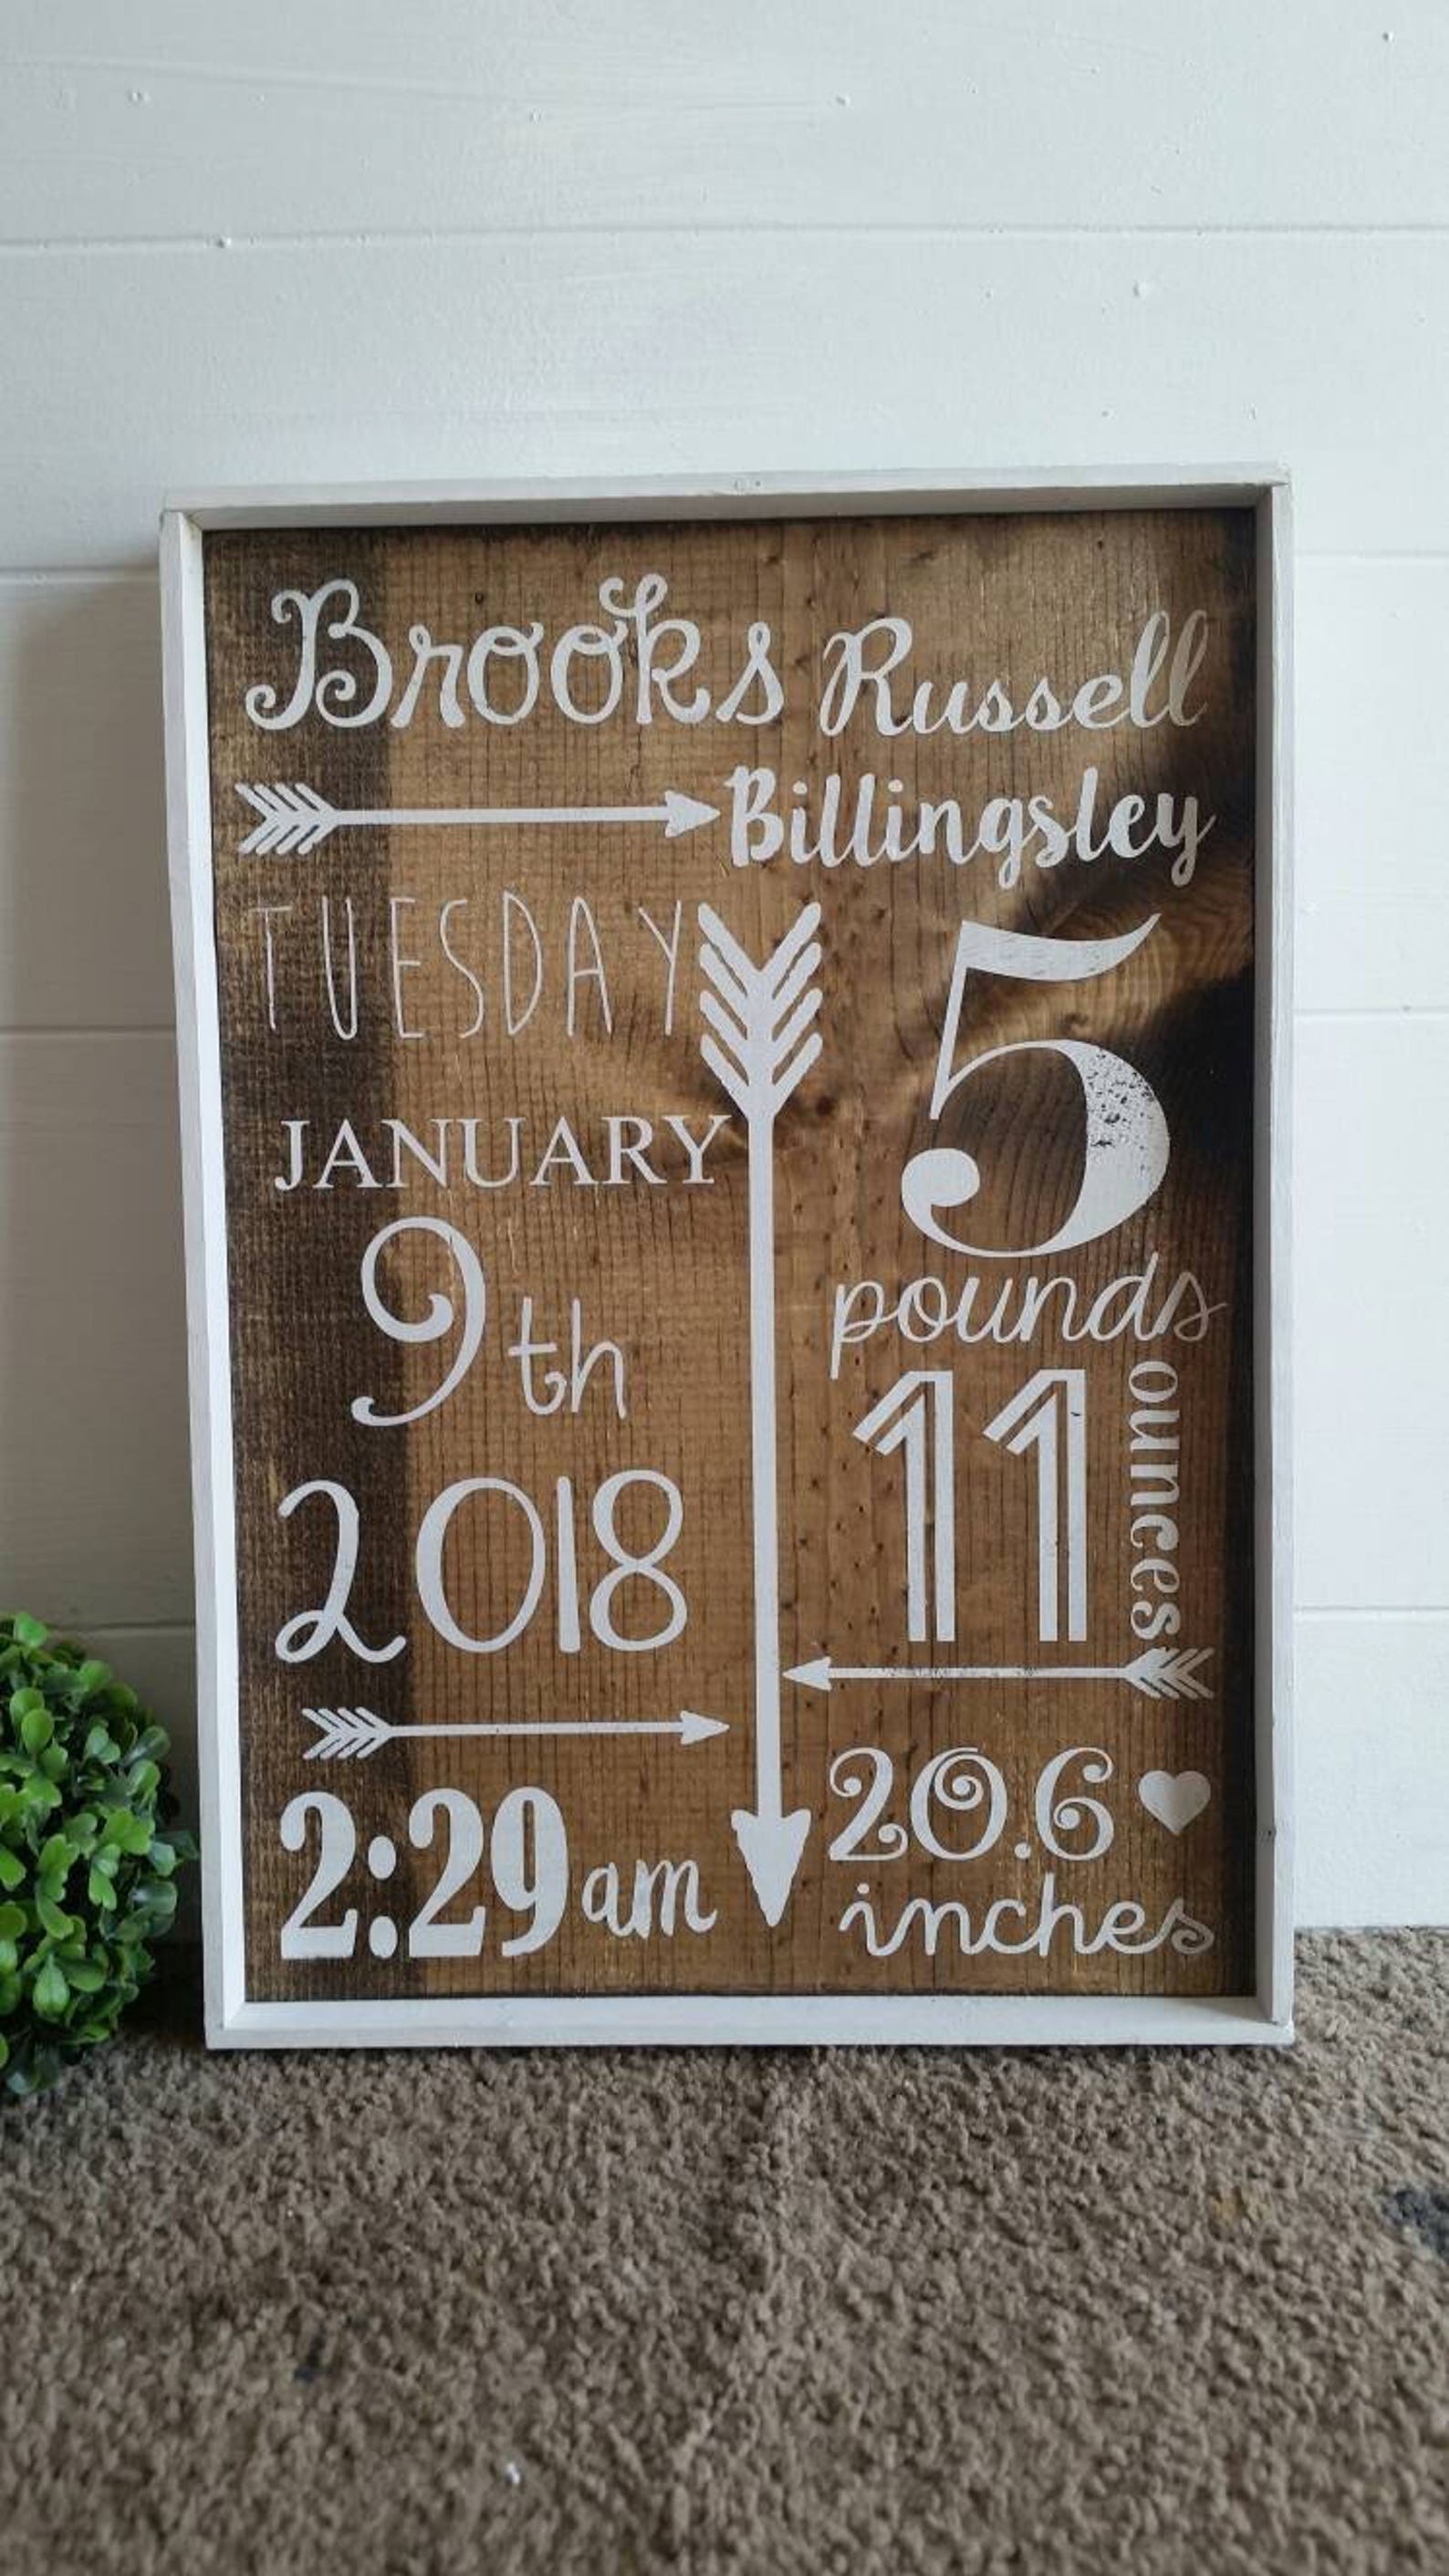 Brooks Russell
Billingsley
TUESDAY
JANUARY
9th
2018
2:29 am
5
pounds
11 ounces
20.6
inches